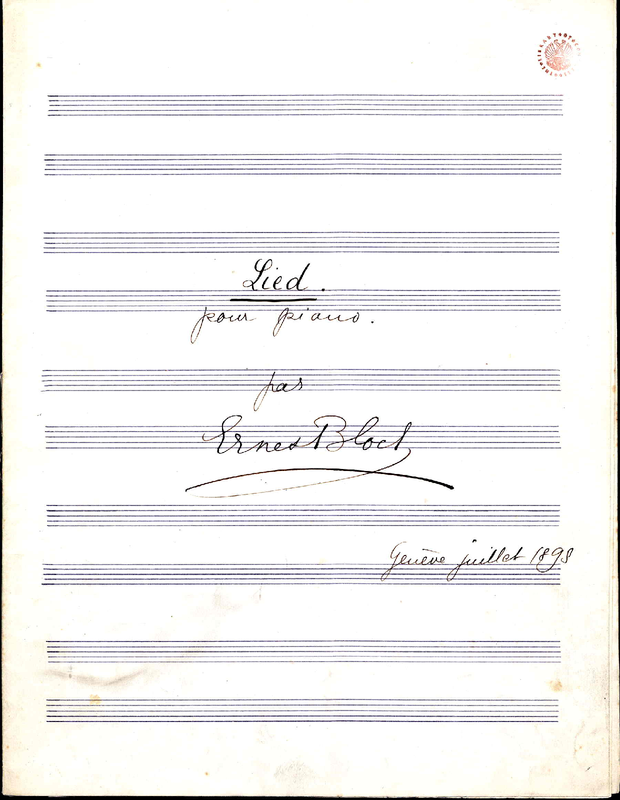 Lied.
pour piano.
par
Ernest Bloch
Genève juillet 1898